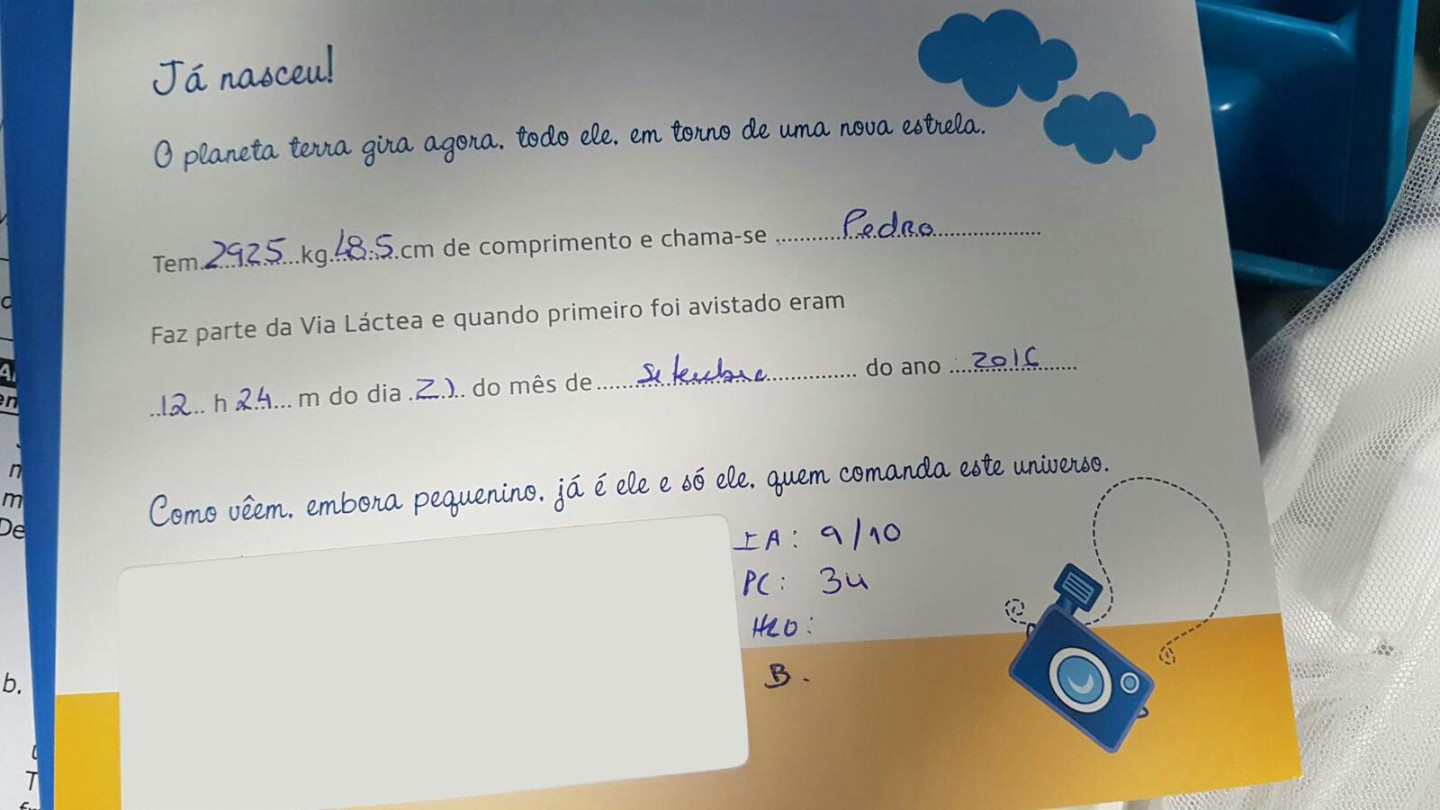 Já nasceu!
O planeta terra gira agora, todo ele, em torno de uma nova estrela.
Tem 2925 kg 48.5 cm de comprimento e chama-se Pedro
Faz parte da Via Láctea e quando primeiro foi avistado eram
12 h 24 m do dia 21 do mês de Setembro do ano 2016
Como vêem, embora pequenino, já é ele e só ele, quem comanda este universo.
IA: 9/10
PC: 34
H2O:
B.
m
De
b.
T